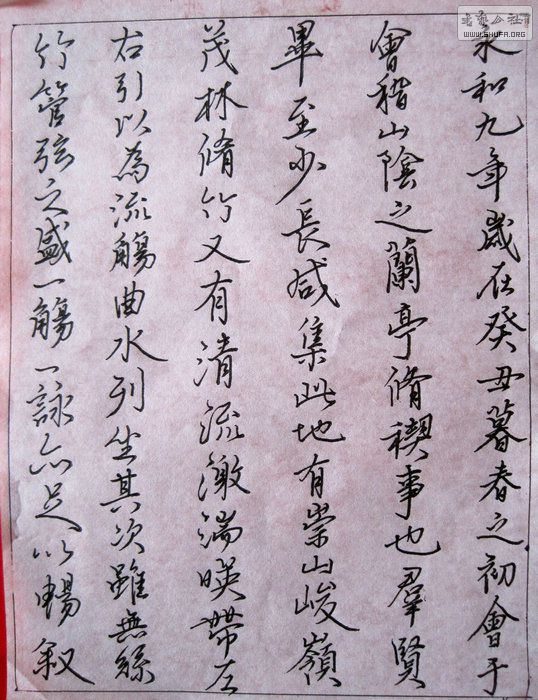 永和九年歲在癸丑暮春之初會于
會稽山陰之蘭亭脩禊事也羣賢
畢至少長咸集此地有崇山峻嶺
茂林脩竹又有清流激湍暎帶左
右引以為流觴曲水列坐其次雖無絲
竹管弦之盛一觴一詠亦足以暢叙
WWW.SHUFA.ORG